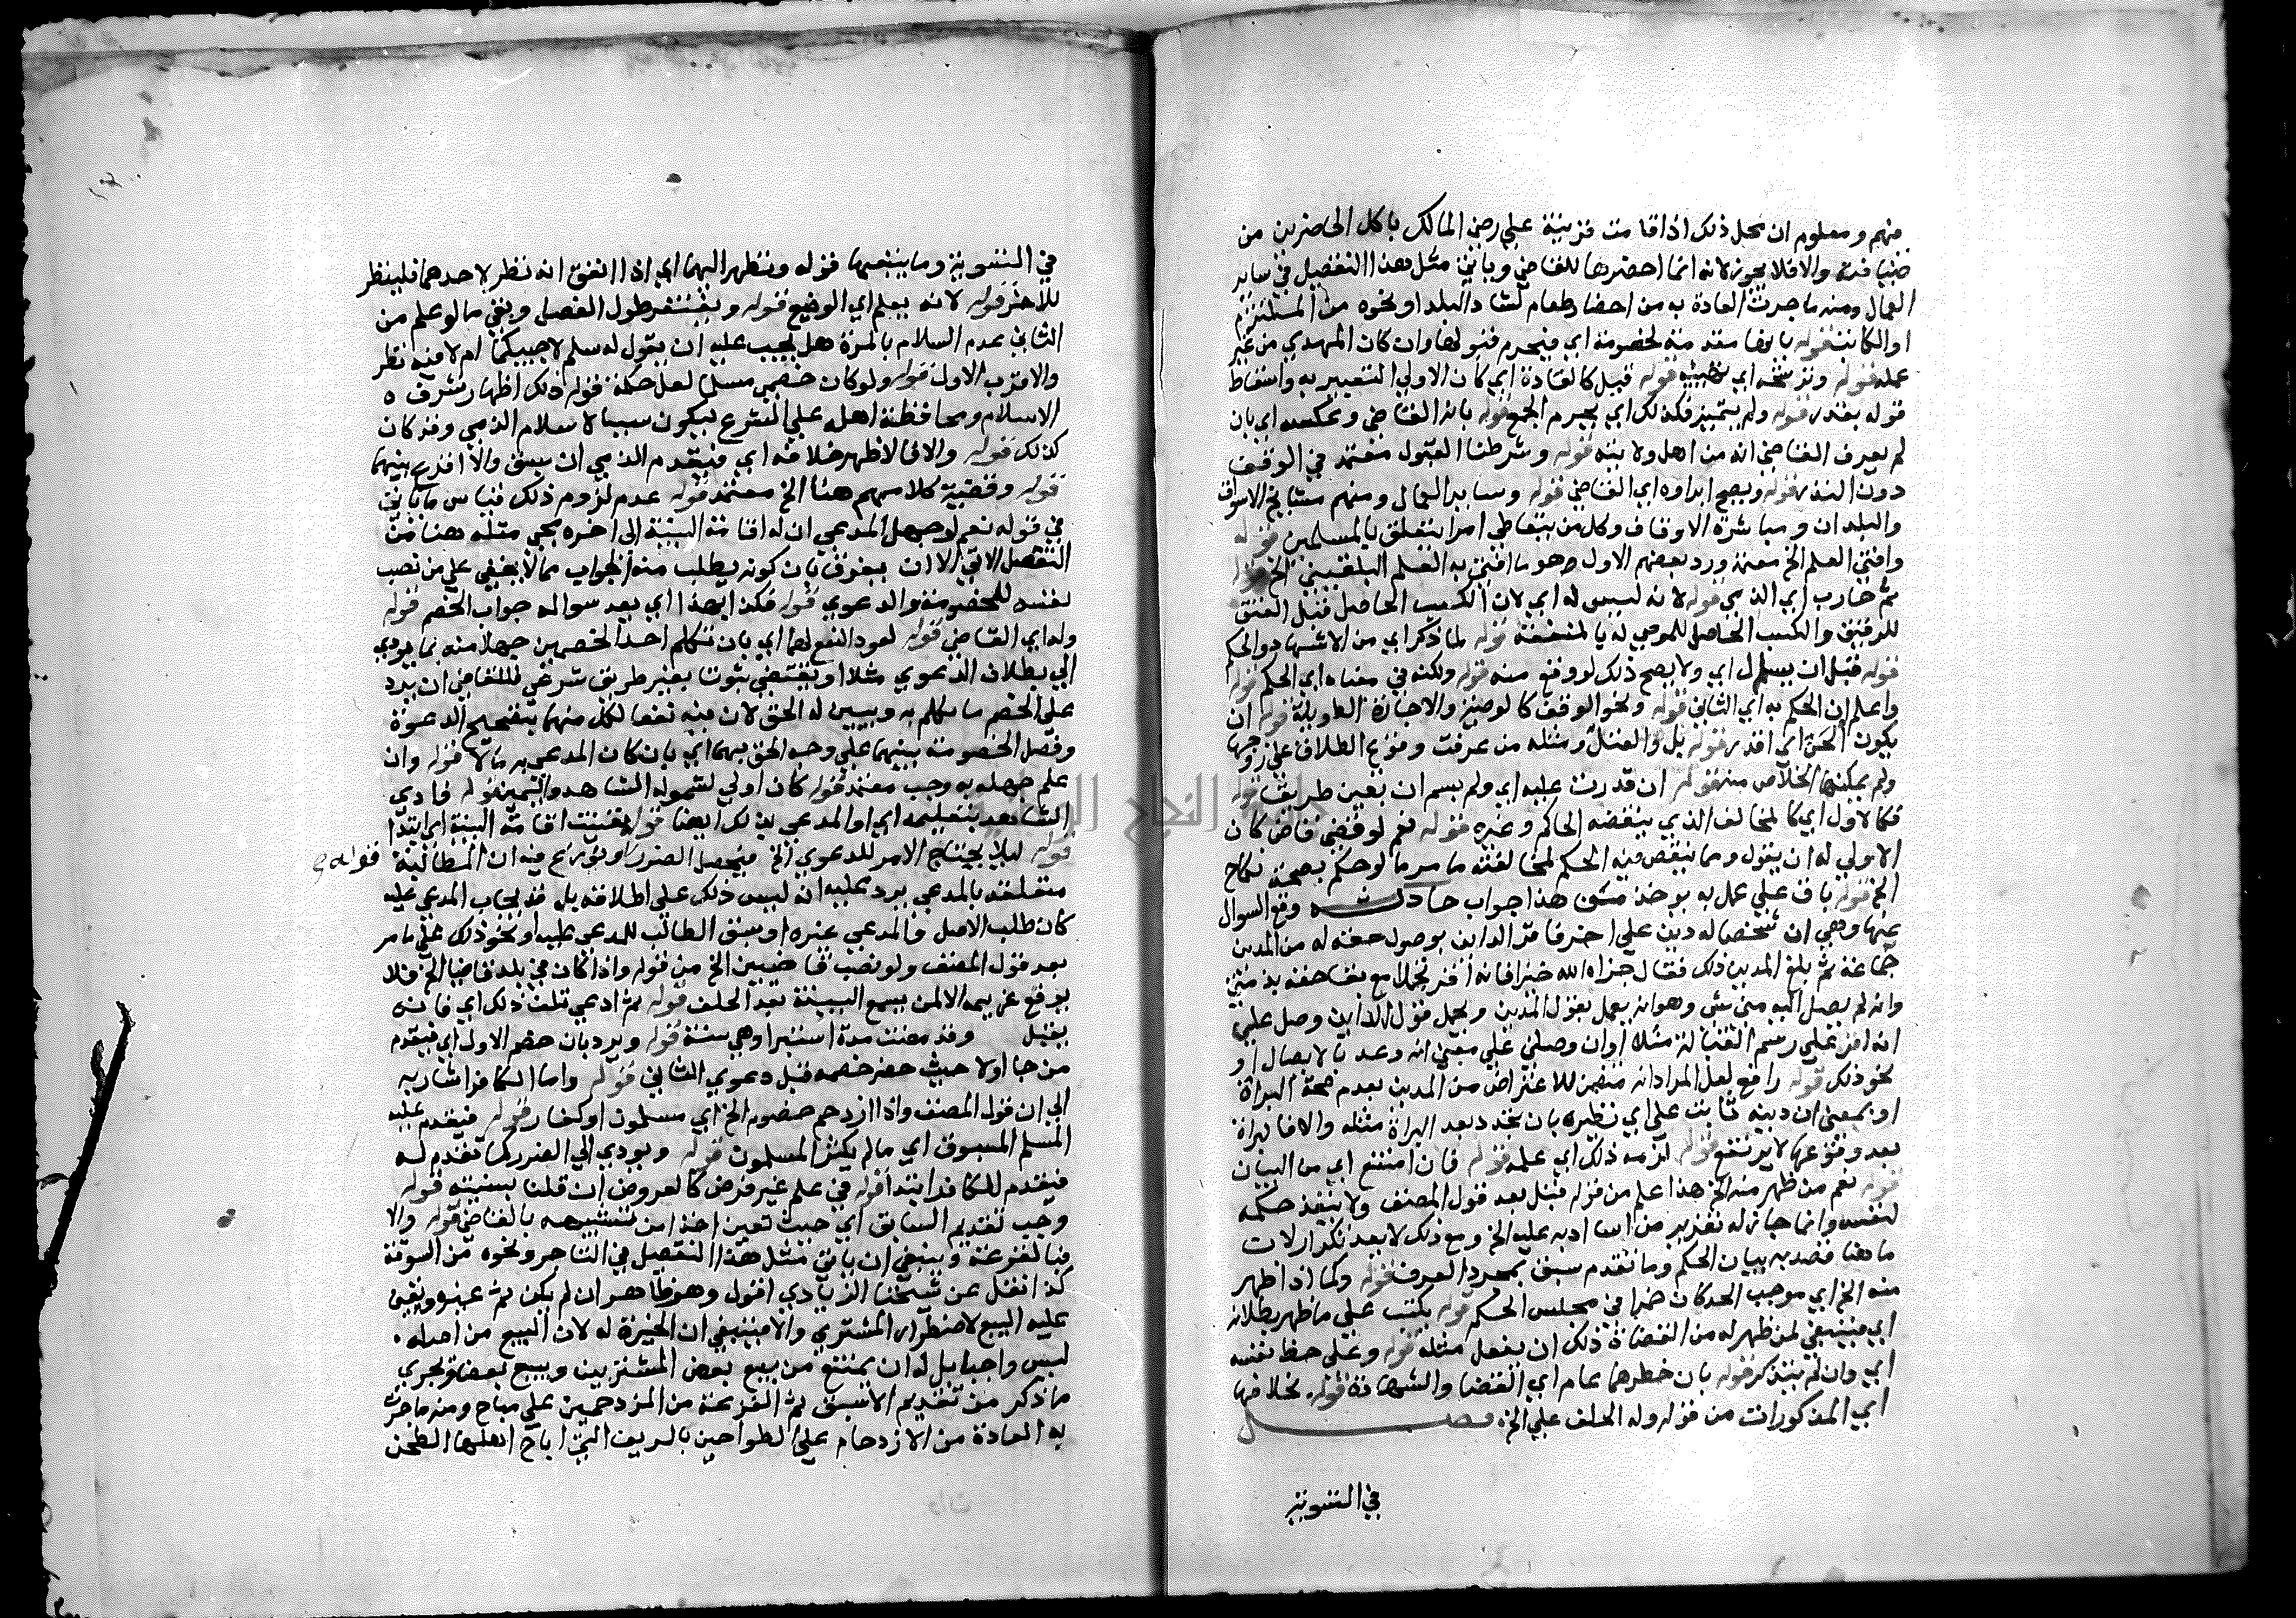 منهم ومعلوم ان محل ذلك اذا قامت قرينة علي رضي المالك باكل الحاضرين من
ضيافته والا فلا يجوز لانه انما احضرها للقاضي وياتي مثل هذا التفصيل في ساير
العمال ومنه ما جرت العادة به من احضار طعام لشاد البلد او نحوه من الملتزم
او الكاتب قوله بانها مقدمة لخصومة اي فيحرم قبولها وان كان المهدي من غير
عمله قوله وترشحه اي تهيئه قوله قبل كالعادة اي كان الاولي التعبير به واسقاط
قوله بقدر قوله ولم يتميز فكذلك اي يحرم الجميع قوله بانه القاضي وعكسه اي بان
لم يعرف القاضي انه من اهل ولايته قوله وشرطنا القبول معتمد في الوقف
دون النذر قوله ويصح ابراوه اي القاضي قوله وساير العمال ومنهم مشايخ الاسواق
والبلدان ومباشرة الاوقاف وكل من يتعاطي امرا يتعلق بالمسلمين قوله
وافتي العلم الخ معتمد ورد بعضهم الاول وهو ما افتي به العلم البلقيني الخ قوله
ثم حارب اي الذمي قوله لانه ليس له اي لان الكسب الحاصل قبل العتق
للرقيق والكسب الحاصل للموصي له بالمنفعة قوله لما ذكر اي من الاشهاد والحكم
قوله قبل ان يسلم ل اي ولا يصح ذلك لو وقع منه قوله ولكنه في معناه اي الحكم قوله
واعلم ان الحكم به اي الثاني قوله ونحو الوقف كالوصية والاجارة الطويلة قوله ان
يكون الحق اي اقدر قوله بل والقتل ومثله من عرفت وقوع الطلاق علي زوجها
ولم يمكنها الخلاص منه قوله ان قدرت عليه اي ولم يسم ان تعين طريقا قوله
فكالاول اي كالمخالف الذي ينقضه الحاكم وغيره قوله نعم لو قضي قاض كان
الاولي له ان يقول وما ينقض فيه الحكم لمخالفته ما مر ما لو حكم بصحة نكاح
الخ قوله باق علي عمل به يوخذ منه هذا جواب حادثة وقع السوال
عنها وهي ان شخصا له دين علي اخر فاقر الداين بوصول حقه له من المدين
جماعة ثم بلغ المدين ذلك فقال جزاه الله خيرا فانه اقر تجملا مع بقا حقه بذمتي
وانه لم يصل اليه مني شي وهو انه يعمل بقول المدين ويحمل قول الداين وصل علي
انه اقر علي رسم القبالة مثلا او ان وصلني علي معني انه وعد بالايصال او
نحو ذلك قوله رافع لعل المراد انه متضمن للاعتراض من المدين بعدم صحة البراة
او بمعني ان دينه ثابت علي اي نظيره بان تجدد بعد البراة مثله والا فالبراة
بعد وقوعها لا يرتفع قوله لزمه ذلك اي علمه قوله فان امتنع اي من البيان
قوله نعم من ظهر منه الخ هذا علم من قوله قبل بعد قول المصنف ولا ينفذ حكمه
لنفسه وانما جاز له تعزير من اسا ادبه عليه الخ ومع ذلك لا يعد تكرارا لان
ما هنا قصد به بيان الحكم وما تقدم سبق بمجرد العرف قوله وكما اذا ظهر
منه الخ اي موجب الحد كان ضرا في مجلس الحكم قوله يكتب علي ما ظهر بطلانه
اي فينبغي لمن ظهر له من القضاة ذلك ان يفعل مثله قوله وعلي حفظ نفسه
اي وان لم يتذكر قوله بان خطرهما عام اي القضا والشهادة قوله بخلافها
اي المذكورات من قوله وله الحلف علي الخ فصل
في التسوية
في التسوية وما يتبعها قوله وتنظر اليهما اي اذا اتفق انه نظر لاحدهما فلينظر
للاخر قوله لانه يعلم اي الوضيع قوله ويغتفر طول الفصل وبقي ما لو علم من
الثاني عدم السلام بالمرة هل يجب عليه ان يقول له سلم لاجيبكما ام لا فيه نظر
والاقرب الاول قوله ولو كان خصمي مسلما لعل حكمة قوله ذلك اظهار شرف
الاسلام ومحافظة اهله علي الشرع ليكون سببا لاسلام الذمي وقد كان
كذلك قوله والا فالاظهر خلافه اي فيقدم الذمي ان سبق والا اقرع بينهما
قوله وقضية كلامهم هنا الخ معتمد قوله عدم لزوم ذلك قياس ما ياتي
في قوله نعم لو جهل المدعي ان له اقامة البينة الي اخره يجي مثله هنا من
التفصيل الاتي الا ان يفرق بان كونه يطلب منه الجواب مما لا يخفي علي من نصب
نفسه للخصومة والدعوي قوله فكذا هذا اي بعد سواله جواب الخصم قوله
وله اي القاضي قوله لعود النفع لهما اي بان تكلم احد الخصمين جهلا منه بما يودي
الي بطلان الدعوي مثلا او يقتضي ثبوتا بغير طريق شرعي فللقاضي ان يرد
علي الخصم ما تكلم به ويبين له الحق لان فيه نفعا لكل منهما بتصحيح الدعوة
وفصل الخصومة بينهما علي وجه الحق بهما اي بان كان المدعي به مالا قوله وان
علم جهله به وجب معتمد قوله كان اولي لشموله الشاهد واليمين قوله فادي
الشاهد بتعليمه اي او المدعي بذلك ايضا قوله تعينت اقامة البينة اي ابتدا
قوله ليلا يحتاج الامر للدعوي الخ فيحصل الضرر ونوزع فيه ان المطالبة قوله
متعلقة بالمدعي يرد عليه انه ليس ذلك علي اطلاقه بل قد يجاب المدعي عليه
كان طلب الاصل والمدعي غيره او سبق الطالب للمدعي عليه او نحو ذلك علي ما مر
بعد قول المصنف ولو نصب قاضيين الخ من قوله واذا كان في بلد قاضيا الخ فلا
يرفع غريمه الا لمن يسمع البينة بعد الحلف قوله ثم ادعي تلف ذلك اي فانه
يقبل وقد مضت مدة استبرا وهي سنة قوله ويرد بان خصم الاول اي فيقدم
من جا اولا حيث حضر خصمه قبل دعوي الثاني قوله واما الكافر اشار به
الي ان قول المصنف واذا ازدحم خصوم الخ اي مسلمون او كفار قوله فيقدم عليه
المسلم المسبوق اي ما لم يكثر المسلمون قوله ويودي الي الضرر كما تقدم له
فيقدم للكافر ابتدا قوله في علم غير فرض كالعروض ان قلنا بسنيته قوله
وجب تقديم السابق اي حيث تعين اخذا من تشبيهه بالقاضي قوله والا
فبالقرعة وينبغي ان ياتي مثل هذا التفصيل في التاجر ونحوه من السوقة
كذا نقل عن شيخنا الزيادي اقول وهو ظاهر ان لم يكن ثم غيره وتعين
عليه البيع لاضطرار المشتري والا فينبغي ان الخيرة له لان البيع من اصله
ليس واجبا بل له ان يمتنع من بيع بعض المشترين ويبيع بعضا ويجري
ما ذكر من تقديم الاسبق ثم القرعة من المزدحمين علي مباح ومنه ما جرت
به العادة من الازدحام علي الطواحين بالريف التي اباح اهلها الطحن